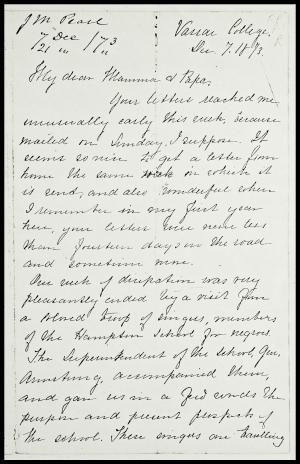 J M Pease
7 Dec / 73
21 in / 11
Vassar College.
Dec. 7. 1873.
My dear Mamma & Papa,
Your letters reached me
unusually early this week, because
mailed on Sunday, I suppose. It
seems so nice to get a letter from
home the same week in which it
is send, and also wonderful when
I remember in my first year
here, your letters were never less
than fourteen days on the road
and sometime more.
Our week of dissipation was very
pleasantly ended by a visit from
a colored troop of singers, members
of the Hampton School for negroes.
The Superintendent of the school, Gen.
Armstrong, accompanied them,
and gave us in a few words the
purpose and present prospects of
the school. These singers are travelling